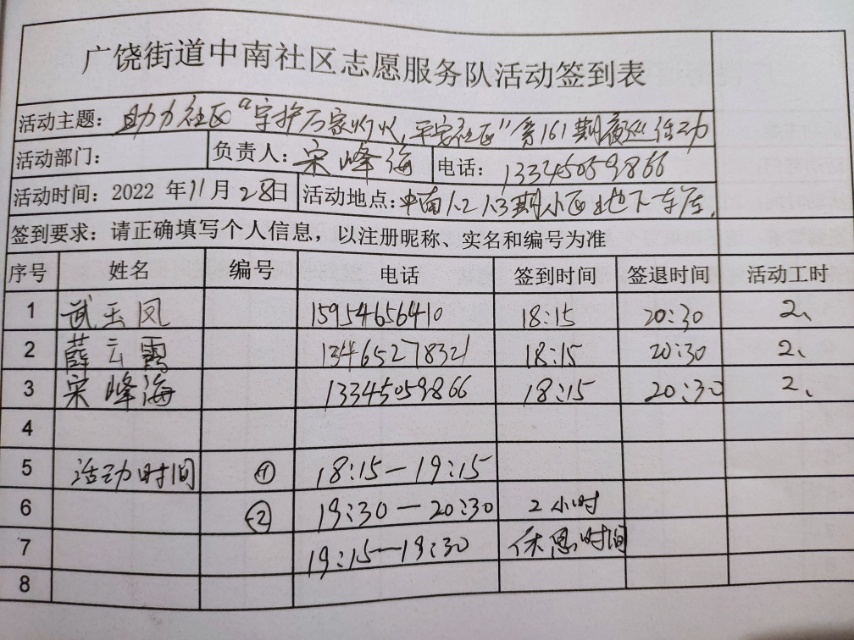 广饶街道中南社区志愿服务队活动签到表
活动主题: 助力社区“守护万家灯火,平安社区”第161期 活动
活动部门: 负责人: 宋峰海 电话: 13345059866
活动时间: 2022 年11月28日 活动地点: 中南1.2.3期小区地下车库.
签到要求: 请正确填写个人信息, 以注册昵称、实名和编号为准
序号 姓名 编号 电话 签到时间 签退时间 活动工时
1 武玉凤 15954656410 18:15 20:30 2、
2 薛云霞 13465278321 18:15 20:30 2、
3 宋峰海 13345059866 18:15 20:30 2、
4
5 活动时间 ① 18:15—19:15
6 ② 19:30—20:30 2小时
7 19:15—19:30 休息时间
8